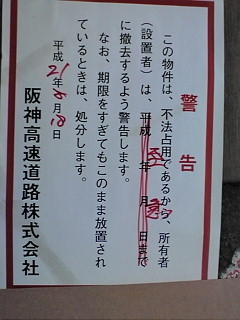 警告
この物件は、不法占用であるから、所有者
（設置者）は、平成　年　月　日まで
に撤去するよう警告します。
なお、期限をすぎてもこのまま放置され
ているときは、処分します。
平成21年8月18日
阪神高速道路株式会社